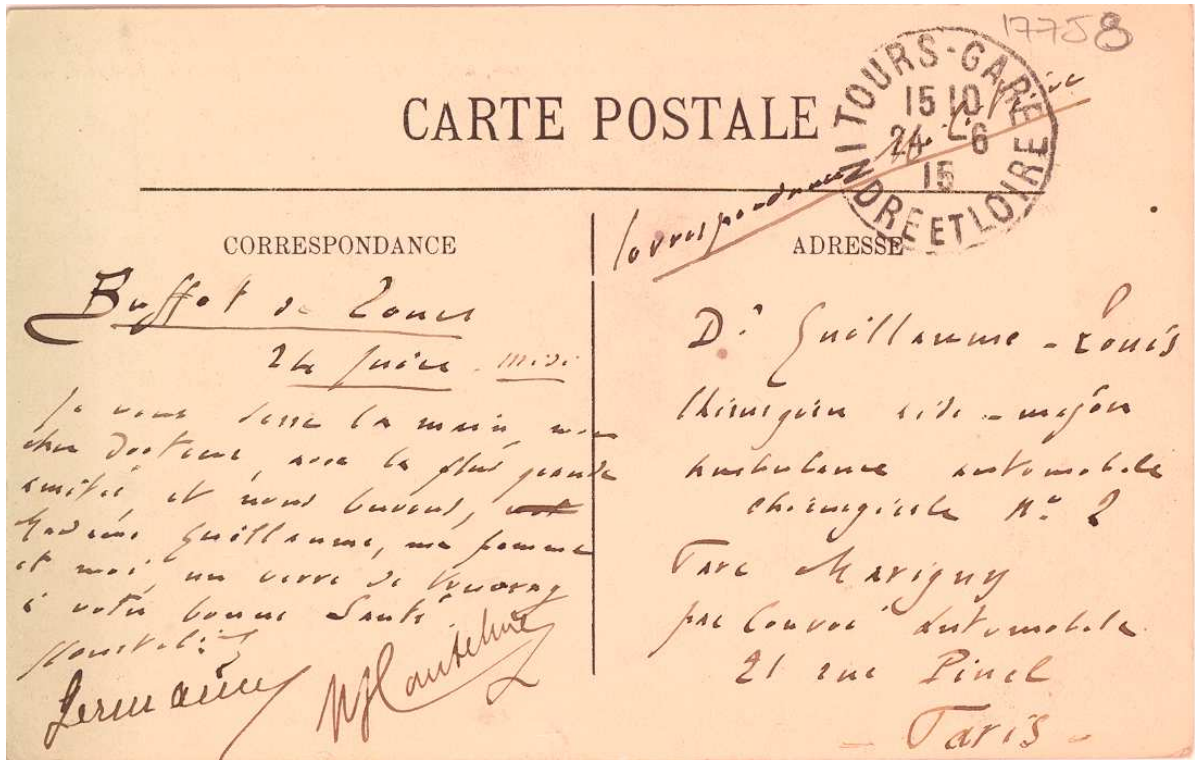 17758
CARTE POSTALE
TOURS-GARE
15 10
24 - 6
15
INDRE ET LOIRE
Correspondance Militaire
CORRESPONDANCE
ADRESSE
Buffet de Tours
24 Juin - midi
Je vous serre la main, mon
cher Docteur, avec la plus grande
amitié et nous buvons,
Madame Guillaume, ma femme
et moi, un verre de Vouvray
à votre bonne Santé
Germaine
Dr Guillaume-Louis
Chirurgien aide-major
Ambulance automobile
chirurgicale No 2
Parc Marigny
par Convoi Automobile
21 rue Pinel
- Paris -